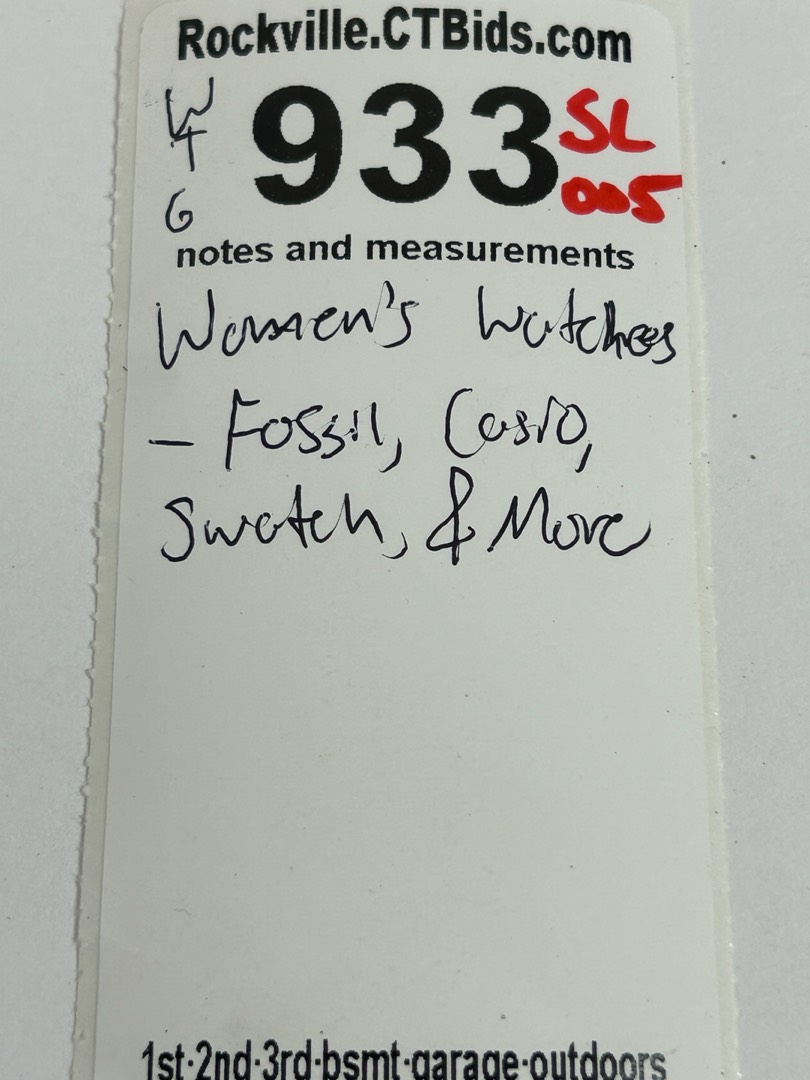 Rockville.CTBids.com
W
T
G
933
SL
005
notes and measurements
Women's Watches
- Fossil, Casio,
Swatch, & More
1st·2nd·3rd·bsmt·garage·outdoors